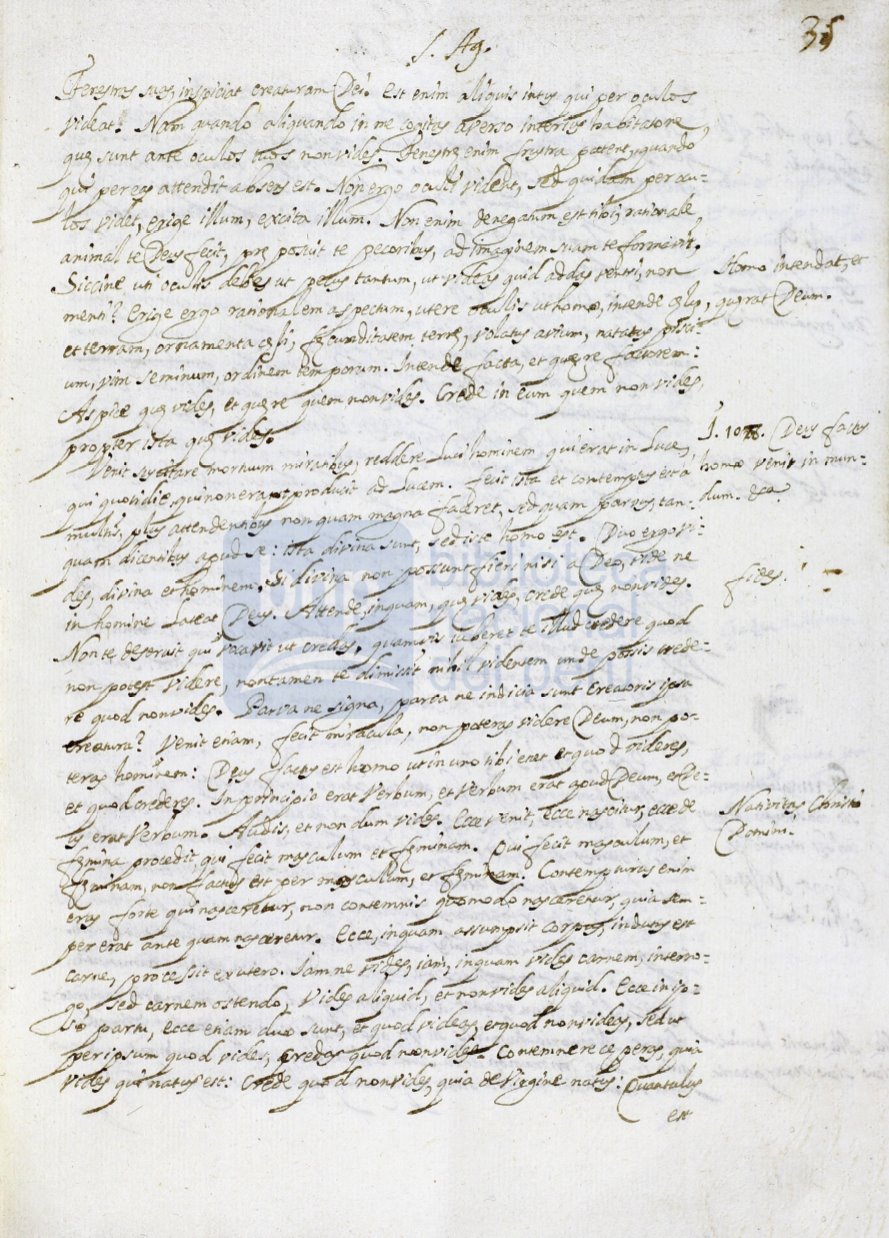 35
S. Ag.
Fenestras suas, inspiciat creaturam Dei. Est enim aliquis intus qui per oculos
videat? Nam quando aliquando in me cogitas averso interius habitatore,
quę sunt ante oculos tuos non vides. Fenestrę enim frustra patent, quando
qui per eas attendit absens est. Non ergo oculi vident, sed quidam per ocu-
los videt, erige illum, excita illum. Non enim denegatum est tibi, rationale
animal te Deus fecit, prę posuit te pecoribus, ad imaginem suam te formavit.
Siccine uti oculis debes ut pecus tantum, ut videas quid addas ventri, non
menti? Erige ergo rationalem aspectum, utere oculis ut homo, intende cęlū,
et terram, ornamenta cęli, fęcunditatem terrę, volatus avium, natatus pisci-
um, vim seminum, ordinem temporum. Intende facta, et quęre factorem:
Aspice quę vides, et quęre quem non vides. Crede in eum quem non vides,
propter ista quę vides.
Homo intendat, et
quęrat Deum.
Venit suscitare mortuum miratibus, reddere Luci hominem qui erat in Luce,
qui quotidie, qui non erant producit ad Lucem. Fecit ista et contemptus est a
multis, plus attendentibus non quam magna faceret, sed quam parvus, tan-
quam dicentibus apud se: ista divina sunt, sed iste homo est. Duo ergo vi-
des, divina et hominem. Si divina non possunt fieri nisi a Deo, vide ne
in homine Lateat Deus. Attende, inquam, quę vides, crede quę non vides.
Non te deseruit qui vocavit ut credas, quamvis iuberet te illud credere quod
non potest videre, non tamen te dimisit nihil videntem unde possis crede-
re quod non vides. Parva ne signa, parva ne indicia sunt creatoris ipsa
creatura? Venit etiam, fecit miracula, non poteras videre Deum, non po-
teras hominem: Deus factus est homo ut in uno tibi esset et quod videres,
et quod crederes. In principio erat Verbum, et Verbum erat apud Deum, et De-
us erat Verbum. Audis, et non dum vides. Ecce venit, ecce nascitur, ecce de
fęmina procedit, qui fecit masculum et fęminam. Qui fecit masculum, et
fęminam, non factus est per masculum, et fęminam. Contempturus enim
eras forte qui nasceretur, non contemnis quomodo nasceretur, quia sem-
per erat ante quam nasceretur. Ecce, inquam assumpsit corpus, indutus est
carne, processit ex utero. Iam ne vides, iam, inquam vides carnem, interro-
go, sed carnem ostendo, vides aliquid, et non vides aliquid. Ecce in ip-
so partu, ecce etiam duo sunt, et quod videas, et quod non videas, sed ut
per ipsum quod vides, credas quod non vides. Contemnere cęperas, quia
vides qui natus est: Crede quod non vides, quia de Virgine natus: Quantulus
est
Deus factus
homo venit in mun-
dum. &ca
fides.
Nativitas Christi
Domini.
biblioteca
nacional
del perú